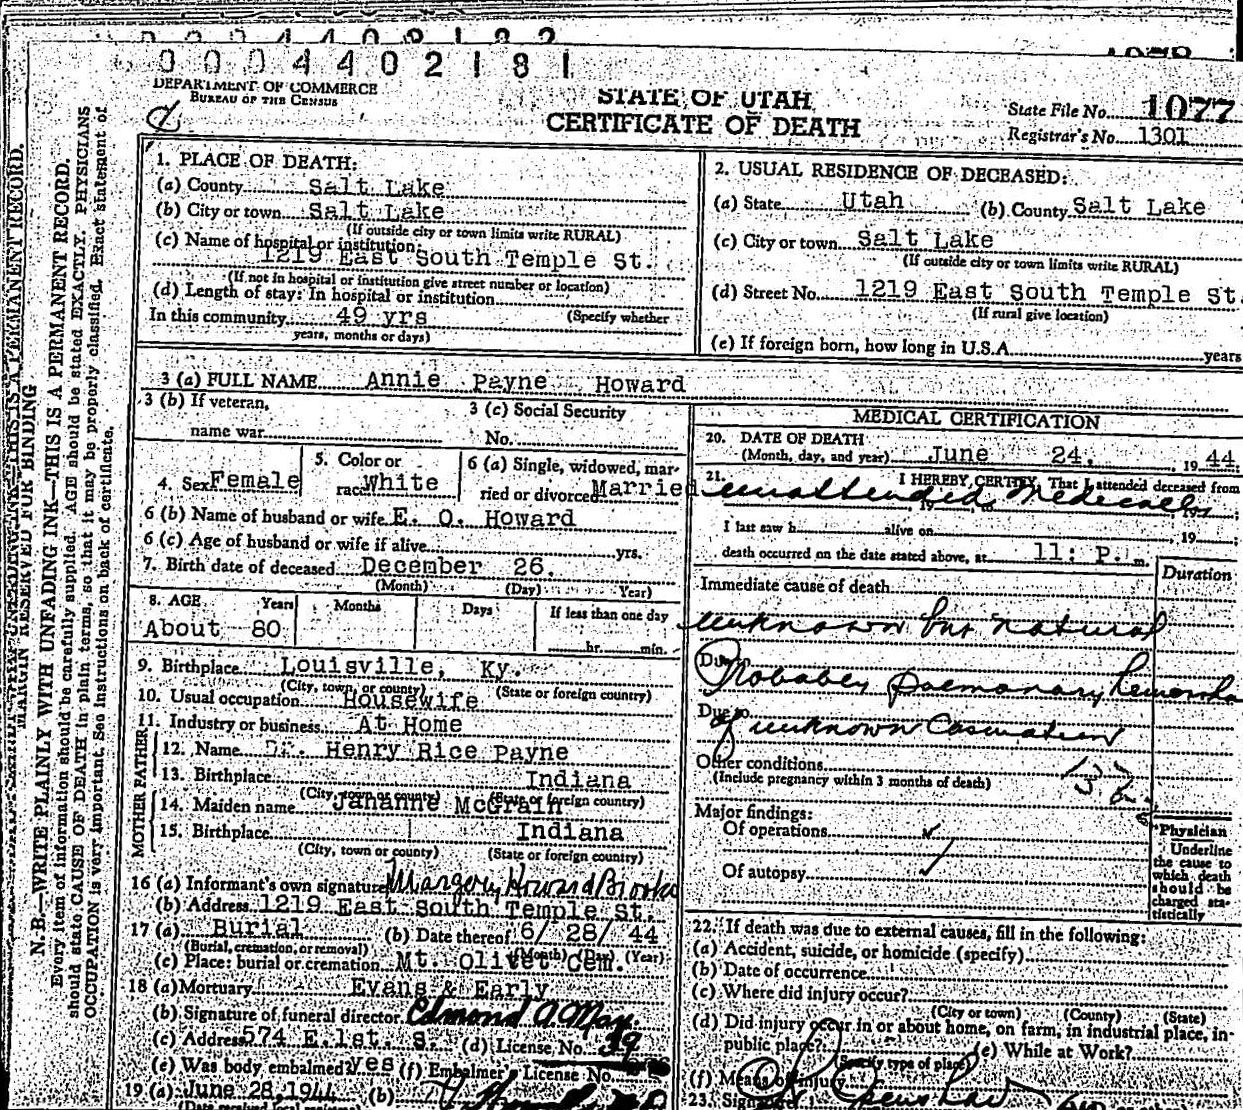 0 0 0 4 4 0 2 1 8 1
DEPARTMENT OF COMMERCE
BUREAU OF THE CENSUS
STATE OF UTAH
CERTIFICATE OF DEATH
State File No. 1077
Registrar's No. 1301
MARGIN RESERVED FOR BINDING
N. B.—WRITE PLAINLY WITH UNFADING INK—THIS IS A PERMANENT RECORD.
Every item of information should be carefully supplied. AGE should be stated EXACTLY. PHYSICIANS
should state CAUSE OF DEATH in plain terms, so that it may be properly classified. Exact statement of
OCCUPATION is very important. See instructions on back of certificate.
1. PLACE OF DEATH:
(a) County Salt Lake
(b) City or town Salt Lake
(If outside city or town limits write RURAL)
(c) Name of hospital or institution:
1219 East South Temple St.
(If not in hospital or institution give street number or location)
(d) Length of stay: In hospital or institution
In this community 49 yrs (Specify whether
years, months or days)
2. USUAL RESIDENCE OF DECEASED:
(a) State Utah (b) County Salt Lake
(c) City or town Salt Lake
(If outside city or town limits write RURAL)
(d) Street No. 1219 East South Temple St.
(If rural give location)
(e) If foreign born, how long in U.S.A. years
3 (a) FULL NAME Annie Payne Howard
3 (b) If veteran,
name war
3 (c) Social Security
No.
4. Sex Female
5. Color or
race White
6 (a) Single, widowed, mar-
ried or divorced Married
6 (b) Name of husband or wife E. O. Howard
6 (c) Age of husband or wife if alive yrs.
7. Birth date of deceased December 26.
(Month) (Day) Year)
8. AGE Years Months Days If less than one day
About 80 hr. min.
9. Birthplace Louisville, Ky.
(City, town, or county) (State or foreign country)
10. Usual occupation Housewife
11. Industry or business At Home
FATHER
12. Name Dr. Henry Rice Payne
13. Birthplace Indiana
(City, town or county) (State or foreign country)
MOTHER
14. Maiden name Jahanne McGrain
15. Birthplace Indiana
(City, town or county) (State or foreign country)
16 (a) Informant's own signature Margery Howard Brooke
(b) Address 1219 East South Temple St.
17 (a) Burial (b) Date thereof 6/ 28/ 44
(Burial, cremation, or removal) (Month) (Day) (Year)
(c) Place: burial or cremation Mt. Olivet Cem.
18 (a) Mortuary Evans & Early
(b) Signature of funeral director Edmond A. May
(c) Address 574 E. 1st. S. (d) License No. 39
(e) Was body embalmed? Yes (f) Embalmer's License No.
19 (a) June 28, 1944 (b)
MEDICAL CERTIFICATION
20. DATE OF DEATH
(Month, day, and year) June 24, 1944
21. I HEREBY CERTIFY, That I attended deceased from
unattended medically
I last saw h alive on , 19 ;
death occurred on the date stated above, at 11: P. m.
Duration
Immediate cause of death
unknown but natural
Due to
Probably pulmonary hemorrha
Due to
of unknown causation
Other conditions
(Include pregnancy within 3 months of death)
Major findings:
Of operations
Of autopsy
Physician
Underline
the cause to
which death
should be
charged sta-
tistically
22. If death was due to external causes, fill in the following:
(a) Accident, suicide, or homicide (specify)
(b) Date of occurrence
(c) Where did injury occur?
(City or town) (County) (State)
(d) Did injury occur in or about home, on farm, in industrial place, in-
public place?
(Specify type of place) (e) While at Work?
(f) Means of injury
23. Signature